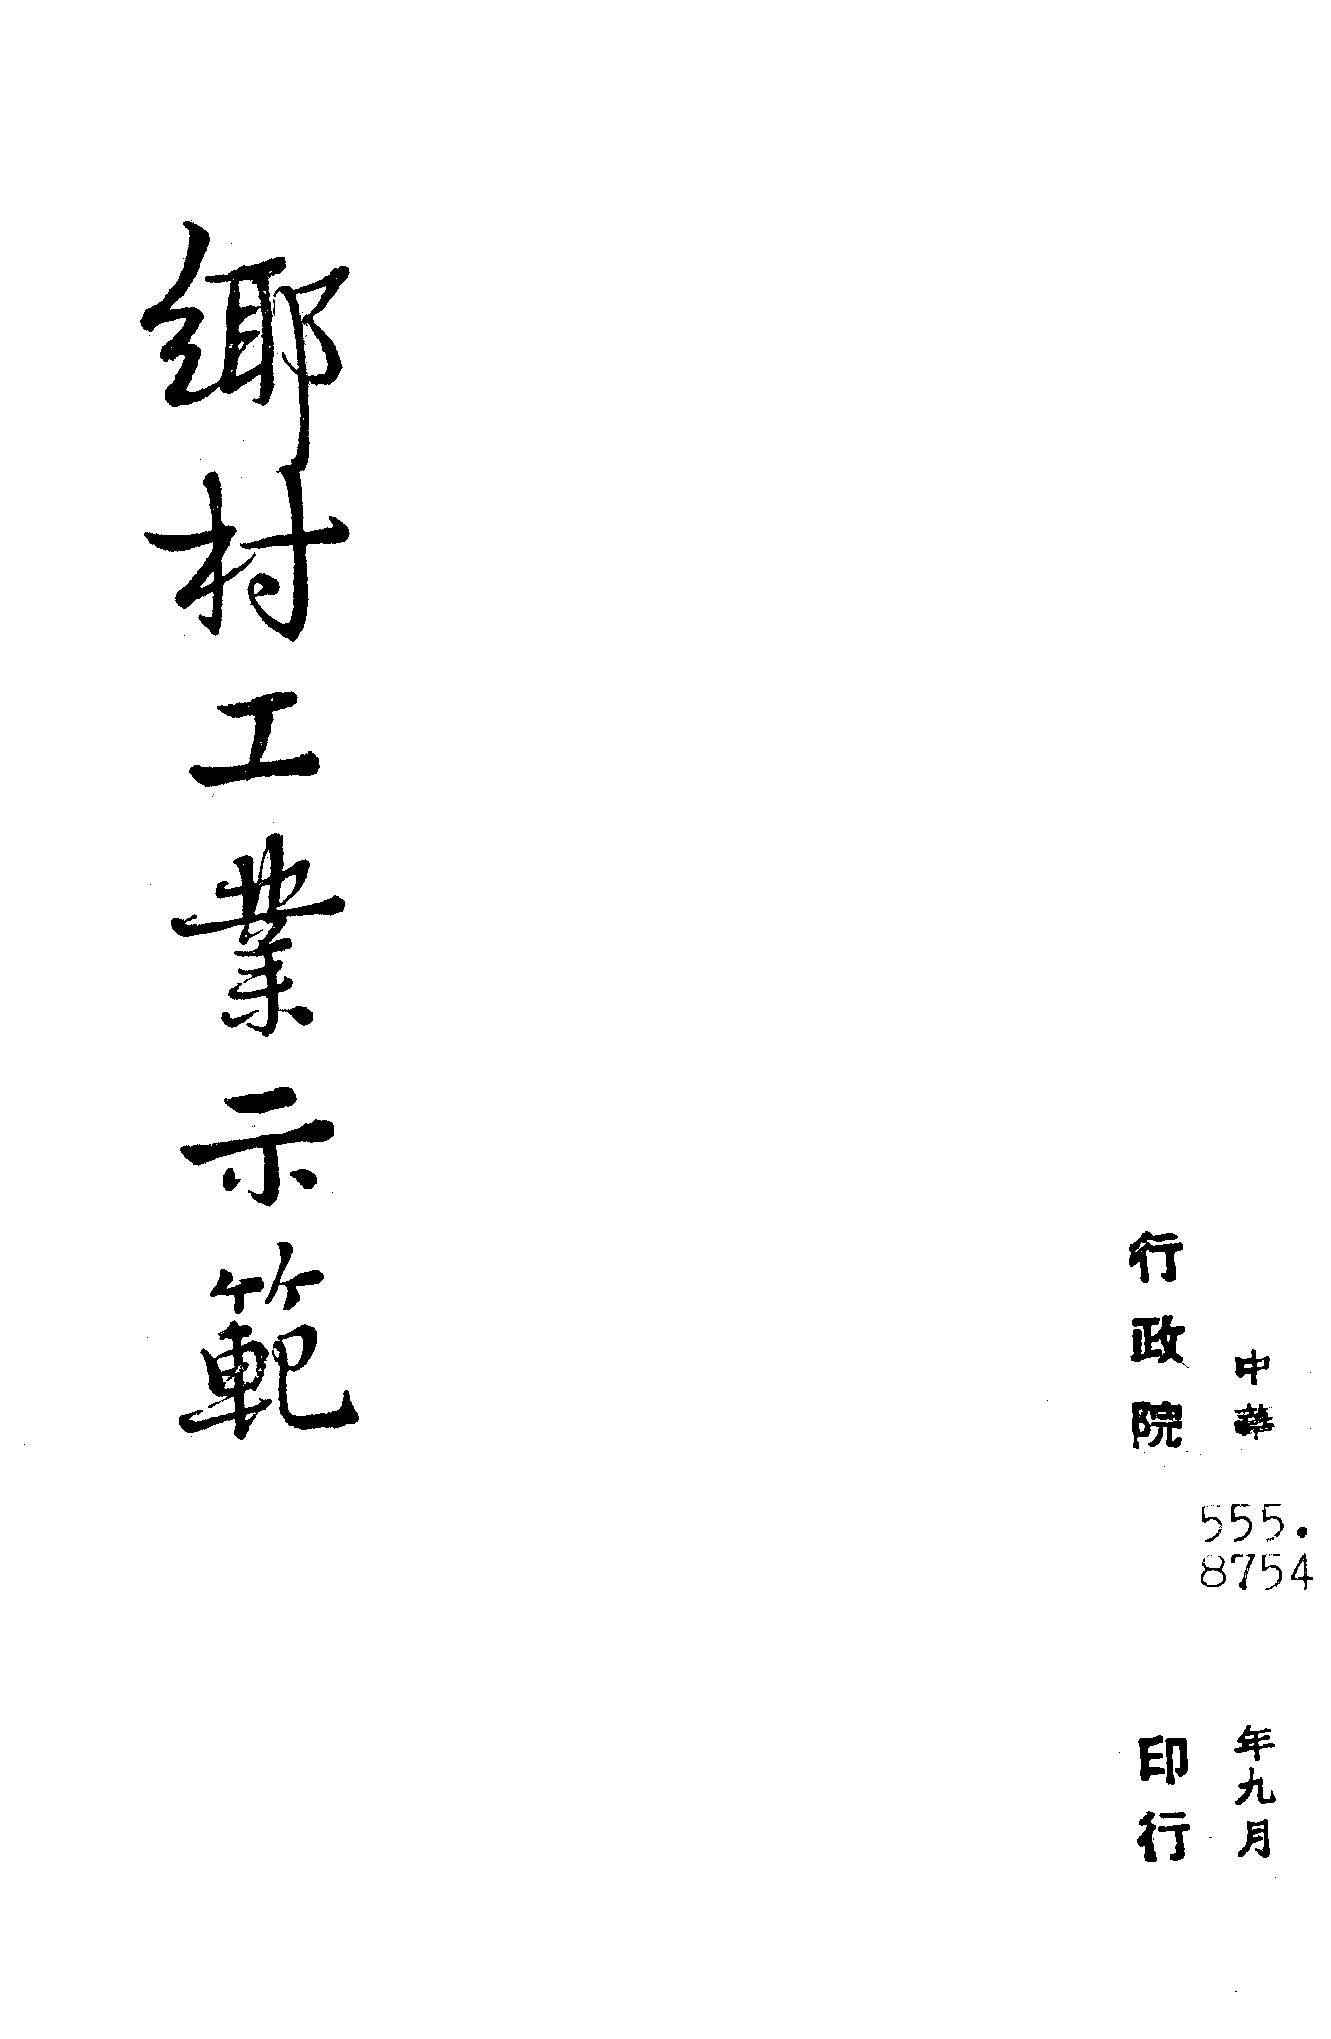 中華
年九月
行政院
印行
555.
8754
鄉村工業示範